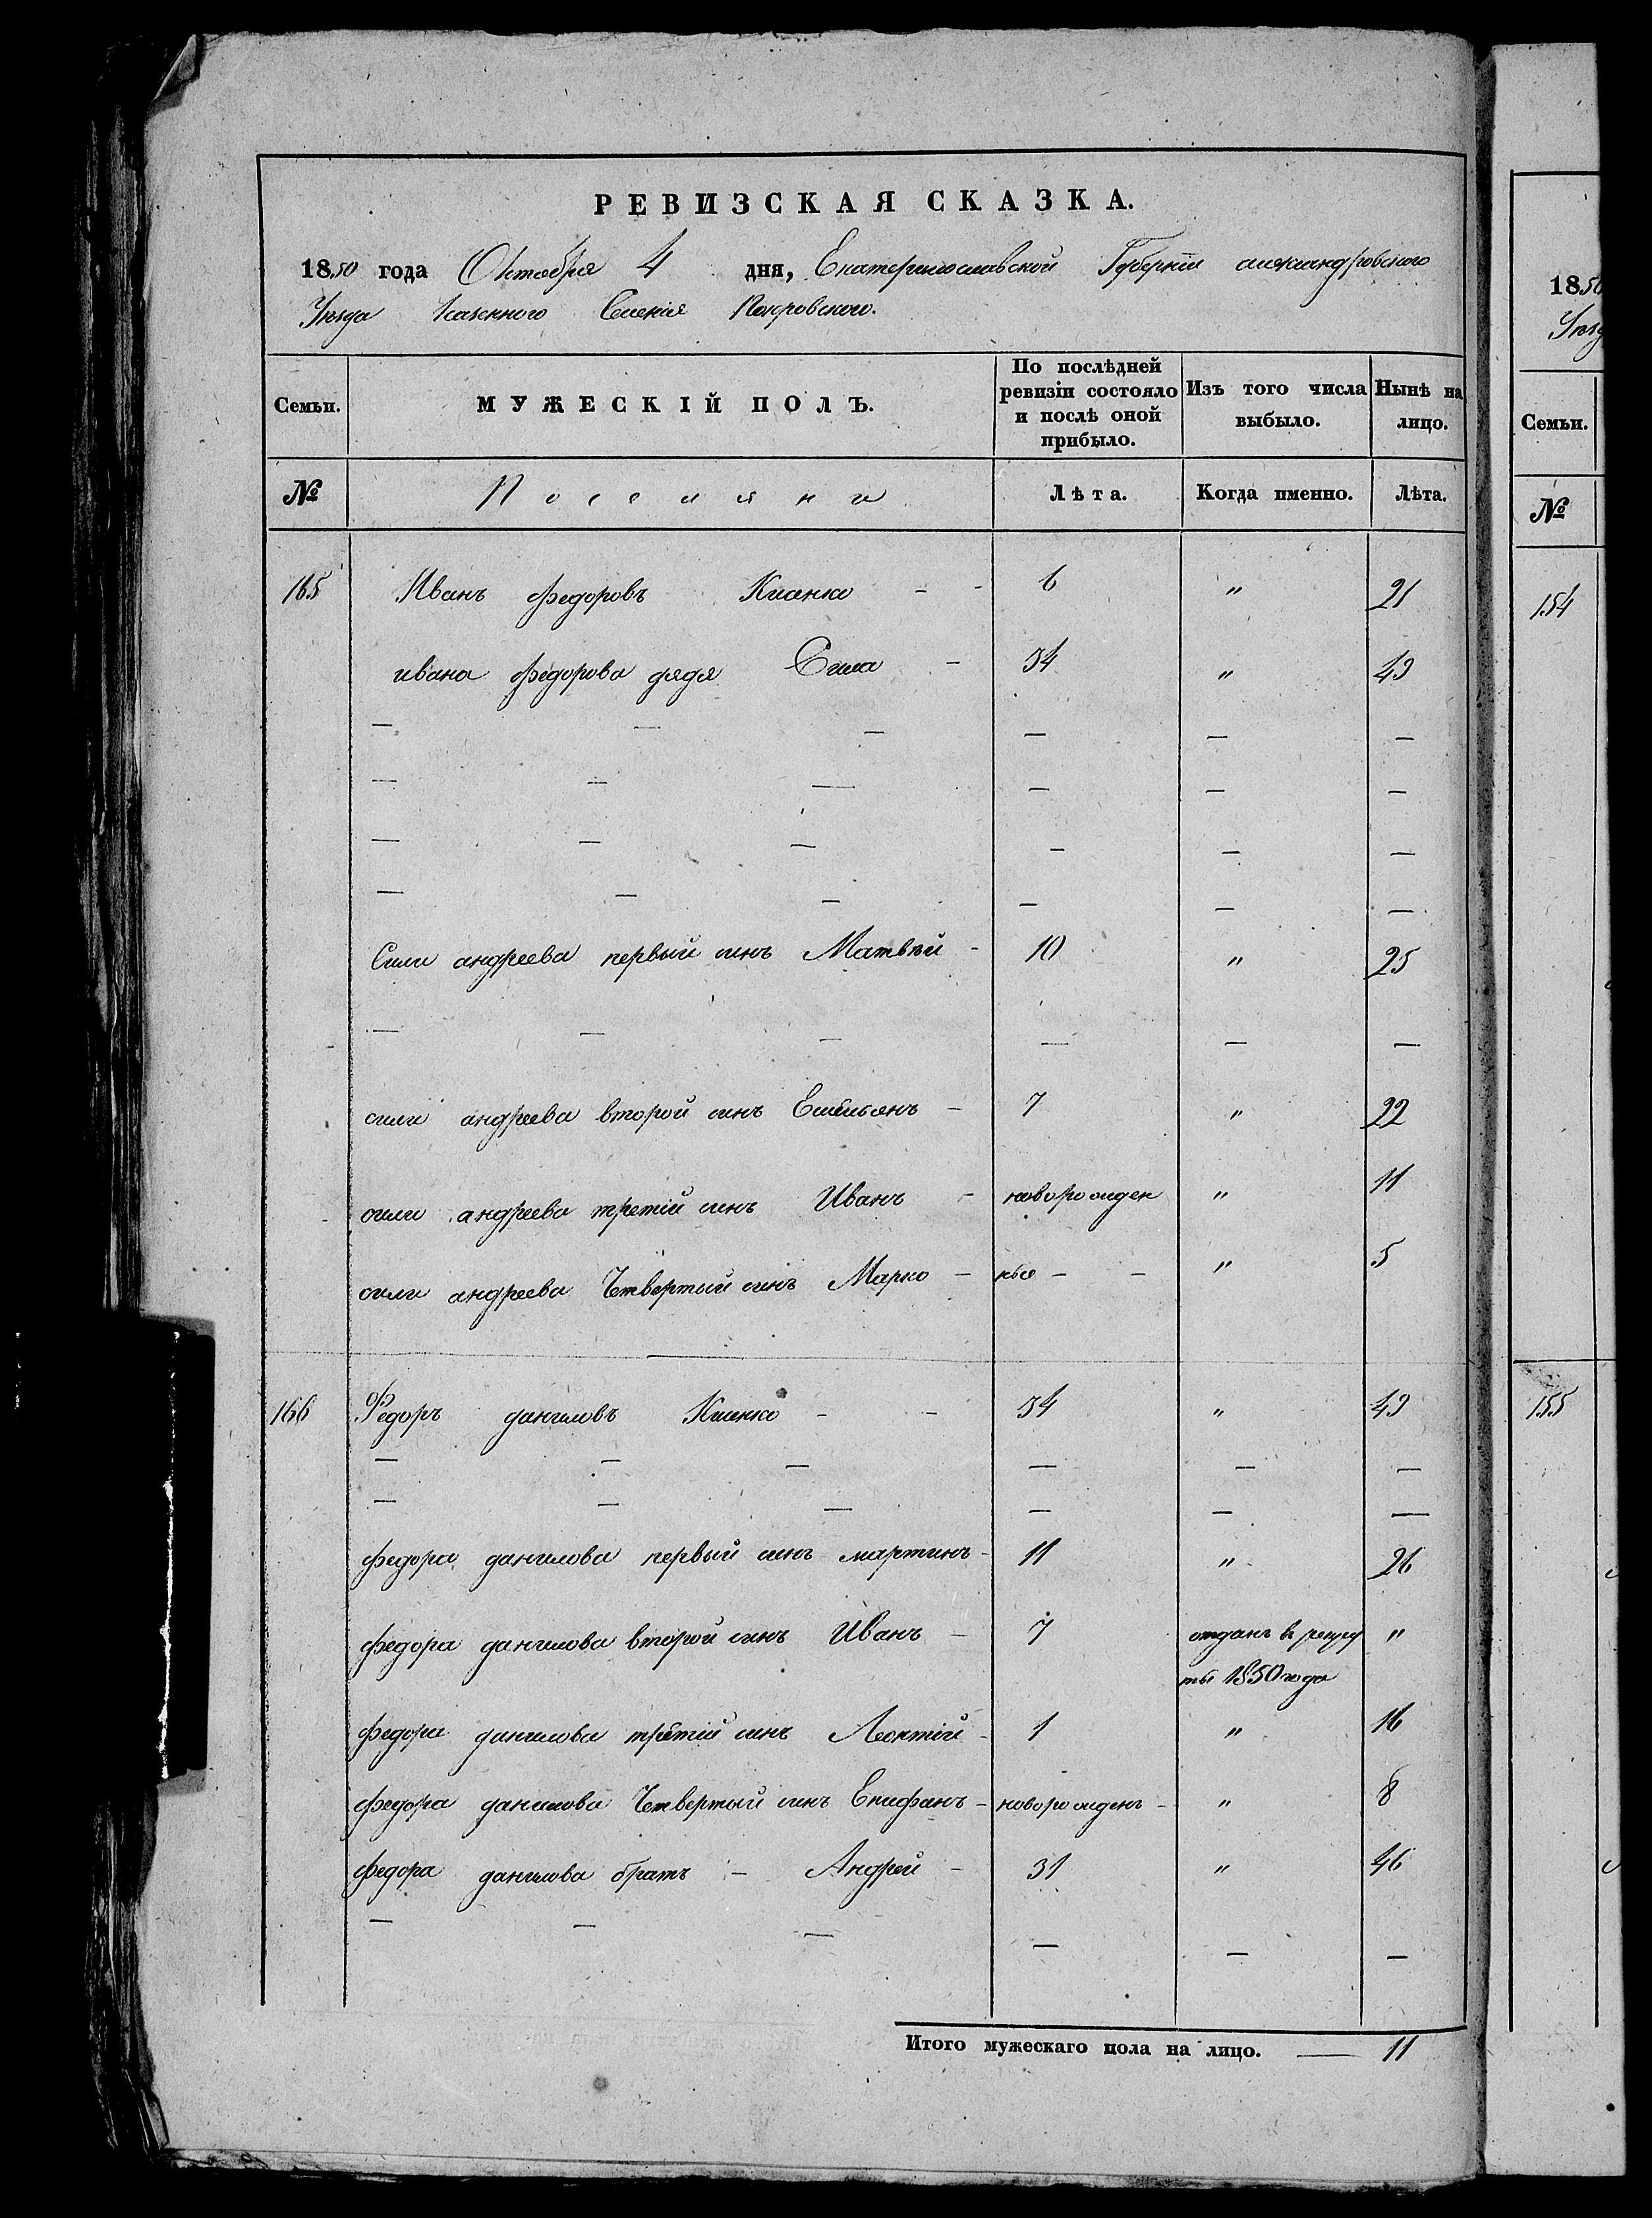 РЕВИЗСКАЯ СКАЗКА.
1850 года Октября 4 дня, Екатеринославской Губернiи александровского
Уезда Казенного Селенiя Покровского.
Семьи. МУЖЕСКІЙ ПОЛЪ. По послѣдней ревизіи состояло и послѣ оной прибыло. Изъ того числа выбыло. Нынѣ на лицо.
№ Поселяни Лѣта. Когда именно. Лѣта.
165 Иванъ федоровъ Кианко - - 6 " 21
ивана федорова дядя Сила - 34 " 49
— — — — — —
— — — — — —
— — — — — —
— — — — — —
Сили андреева первый синъ Матвѣй - 10 " 25
— — — — — —
сили андреева второй синъ Емельянъ - 7 " 22
сили андреева третiй синъ Иванъ - новорожден " 11
сили андреева Четвертый синъ Марко - ные - - " 5
166 Федоръ даниловъ Кианко - - 34 " 49
— — — — — —
— — — — — —
федора данилова первый синъ мартинъ - 11 " 26
федора данилова второй синъ Иванъ - 7 отданъ в рекру "
ты 1850 года
федора данилова третiй синъ Леонтiй - 1 " 16
федора данилова Четвертый синъ Епифанъ - новорожденъ - " 8
федора данилова братъ - Андрей - 31 " 46
— — — — — —
Итого мужескаго пола на лицо. — 11
1850
Уезд
Семьи.
№
154
155